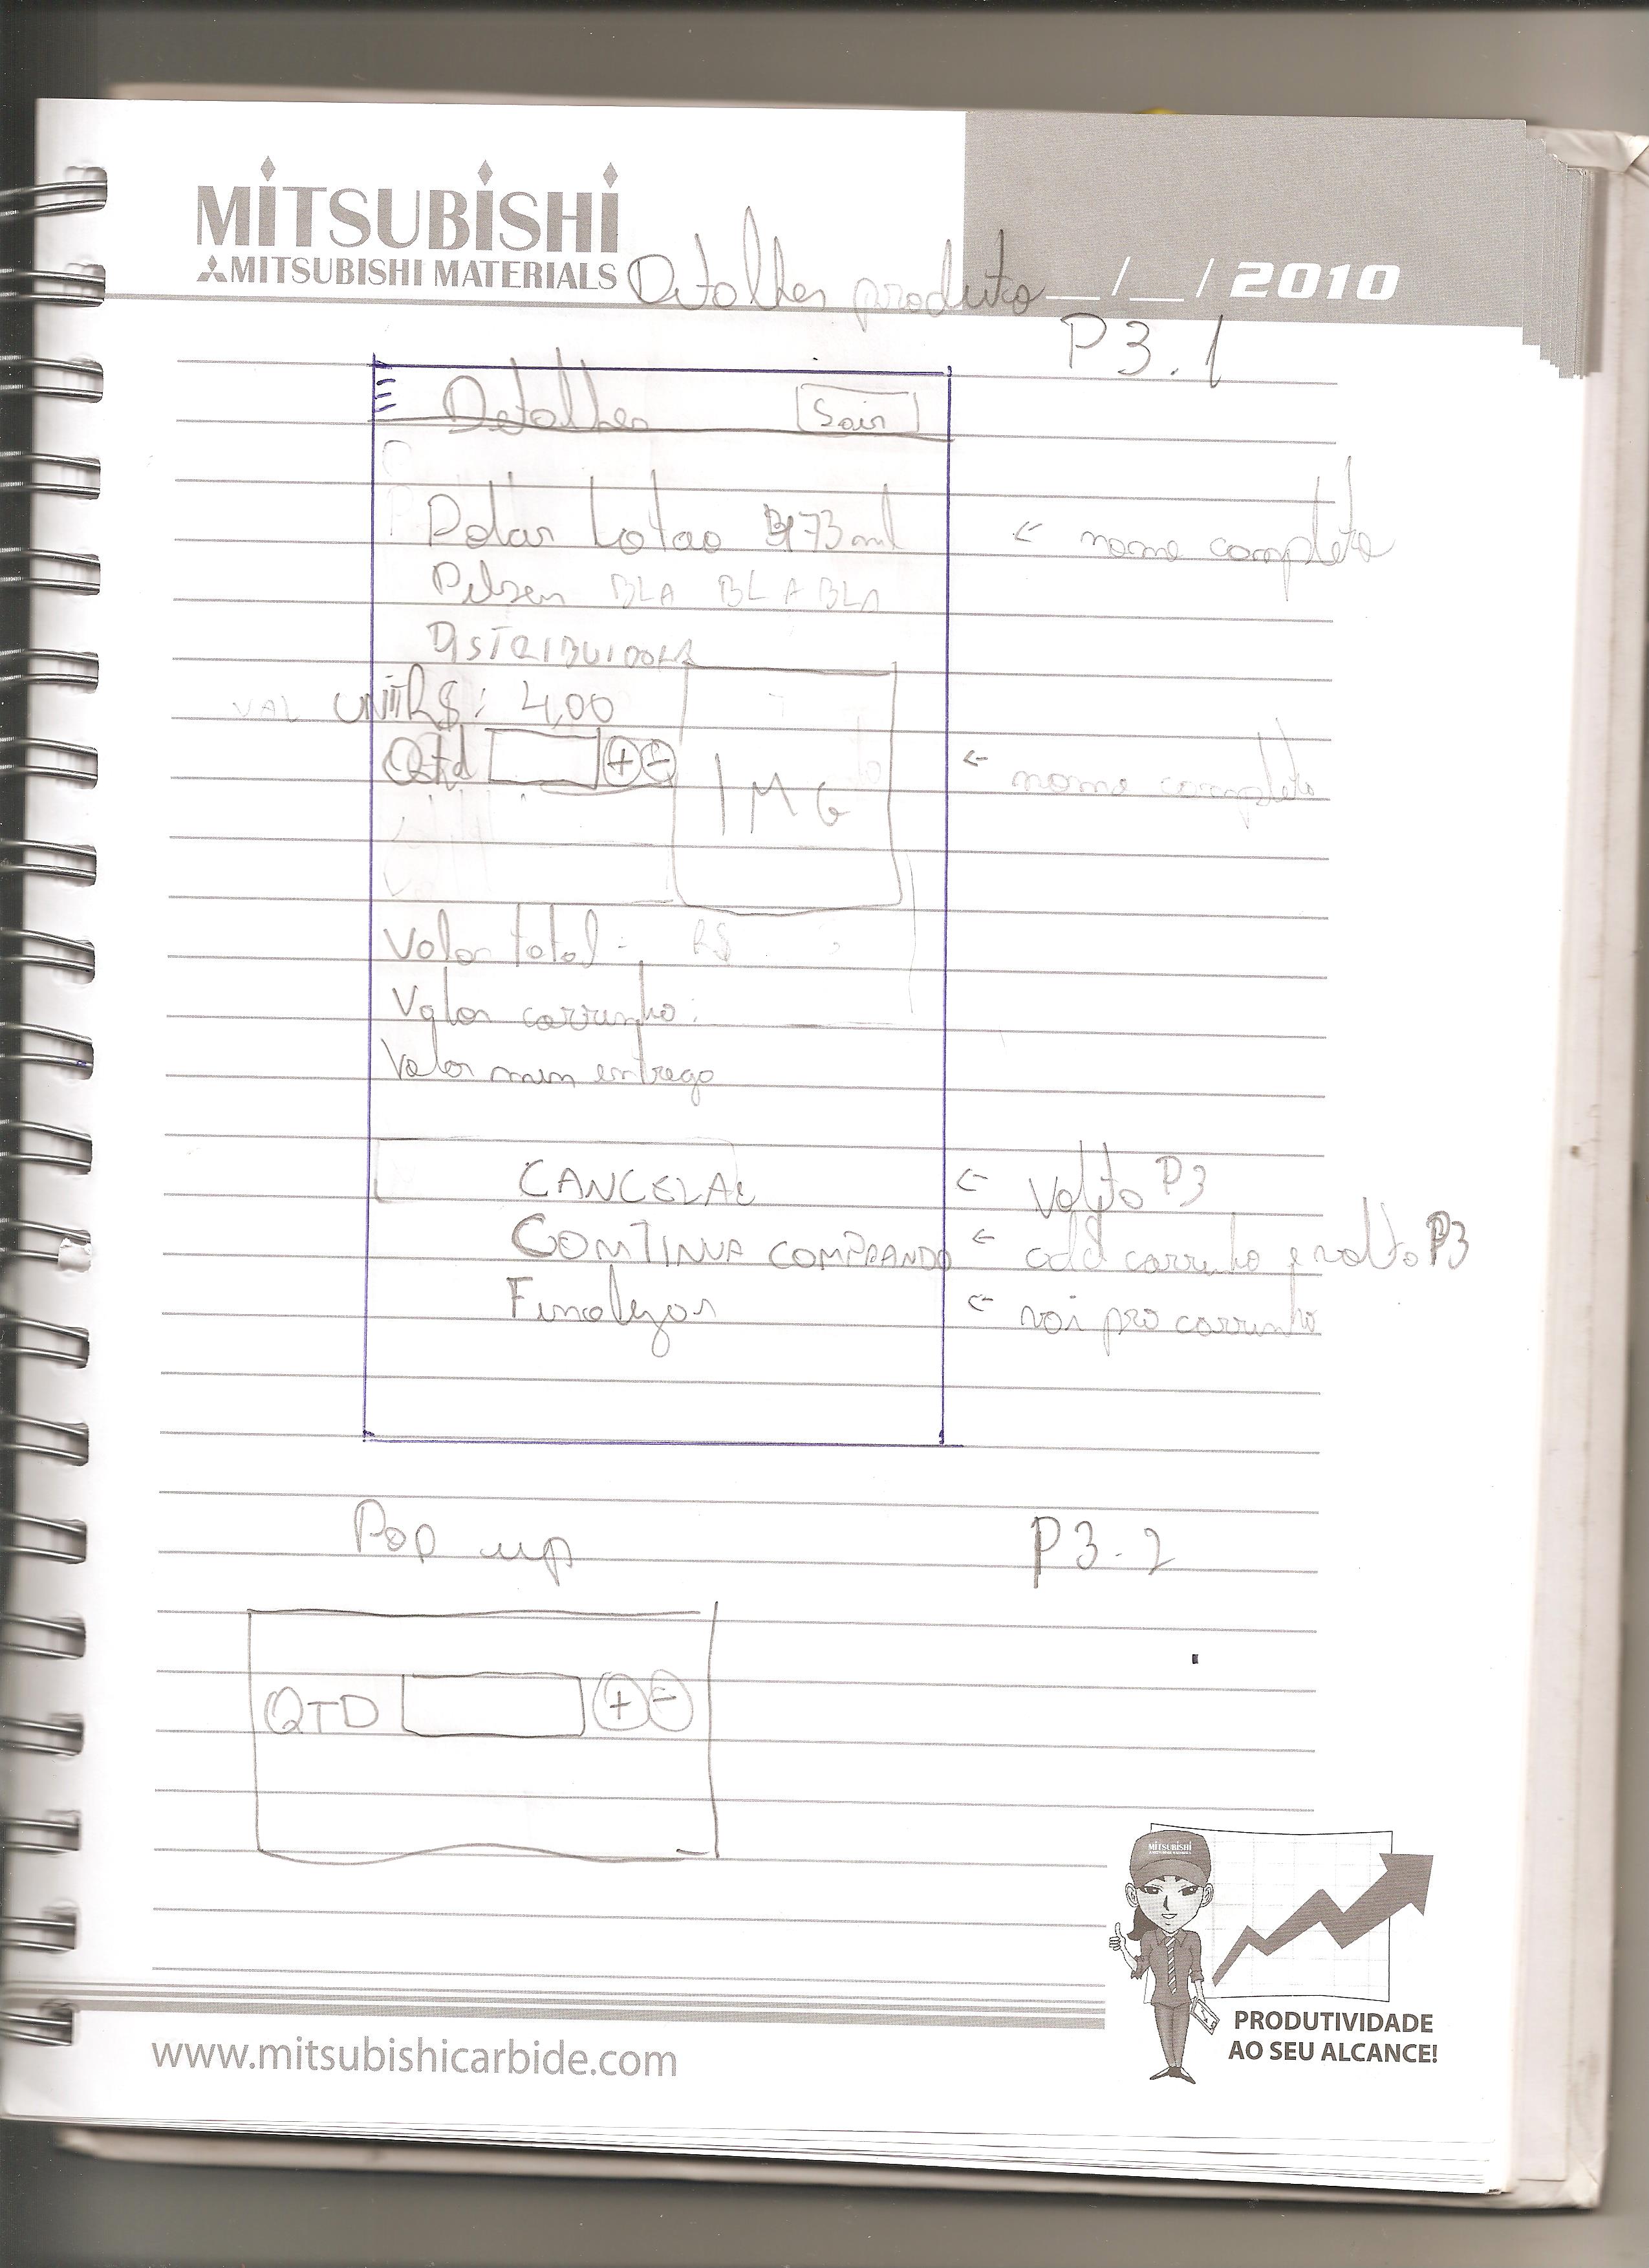 MITSUBISHI
MITSUBISHI MATERIALS
Detalhes produto __/__/2010
P3.1
Detalhes Sair
Polar Latao 473ml ← nome completo
Pilsen BLA BLA BLA
DISTRIBUIDORA
VAL UNIT R$: 4,00
Qtd + - ← nome completo
IMG
Valor total: R$
Valor carrinho:
Valor min entrega
CANCELAR ← Volta P3
CONTINUA COMPRANDO ← add carrinho e volta P3
Finalizar ← vai pro carrinho
Pop up P3.2
QTD + -
MITSUBISHI
PRODUTIVIDADE
AO SEU ALCANCE!
www.mitsubishicarbide.com